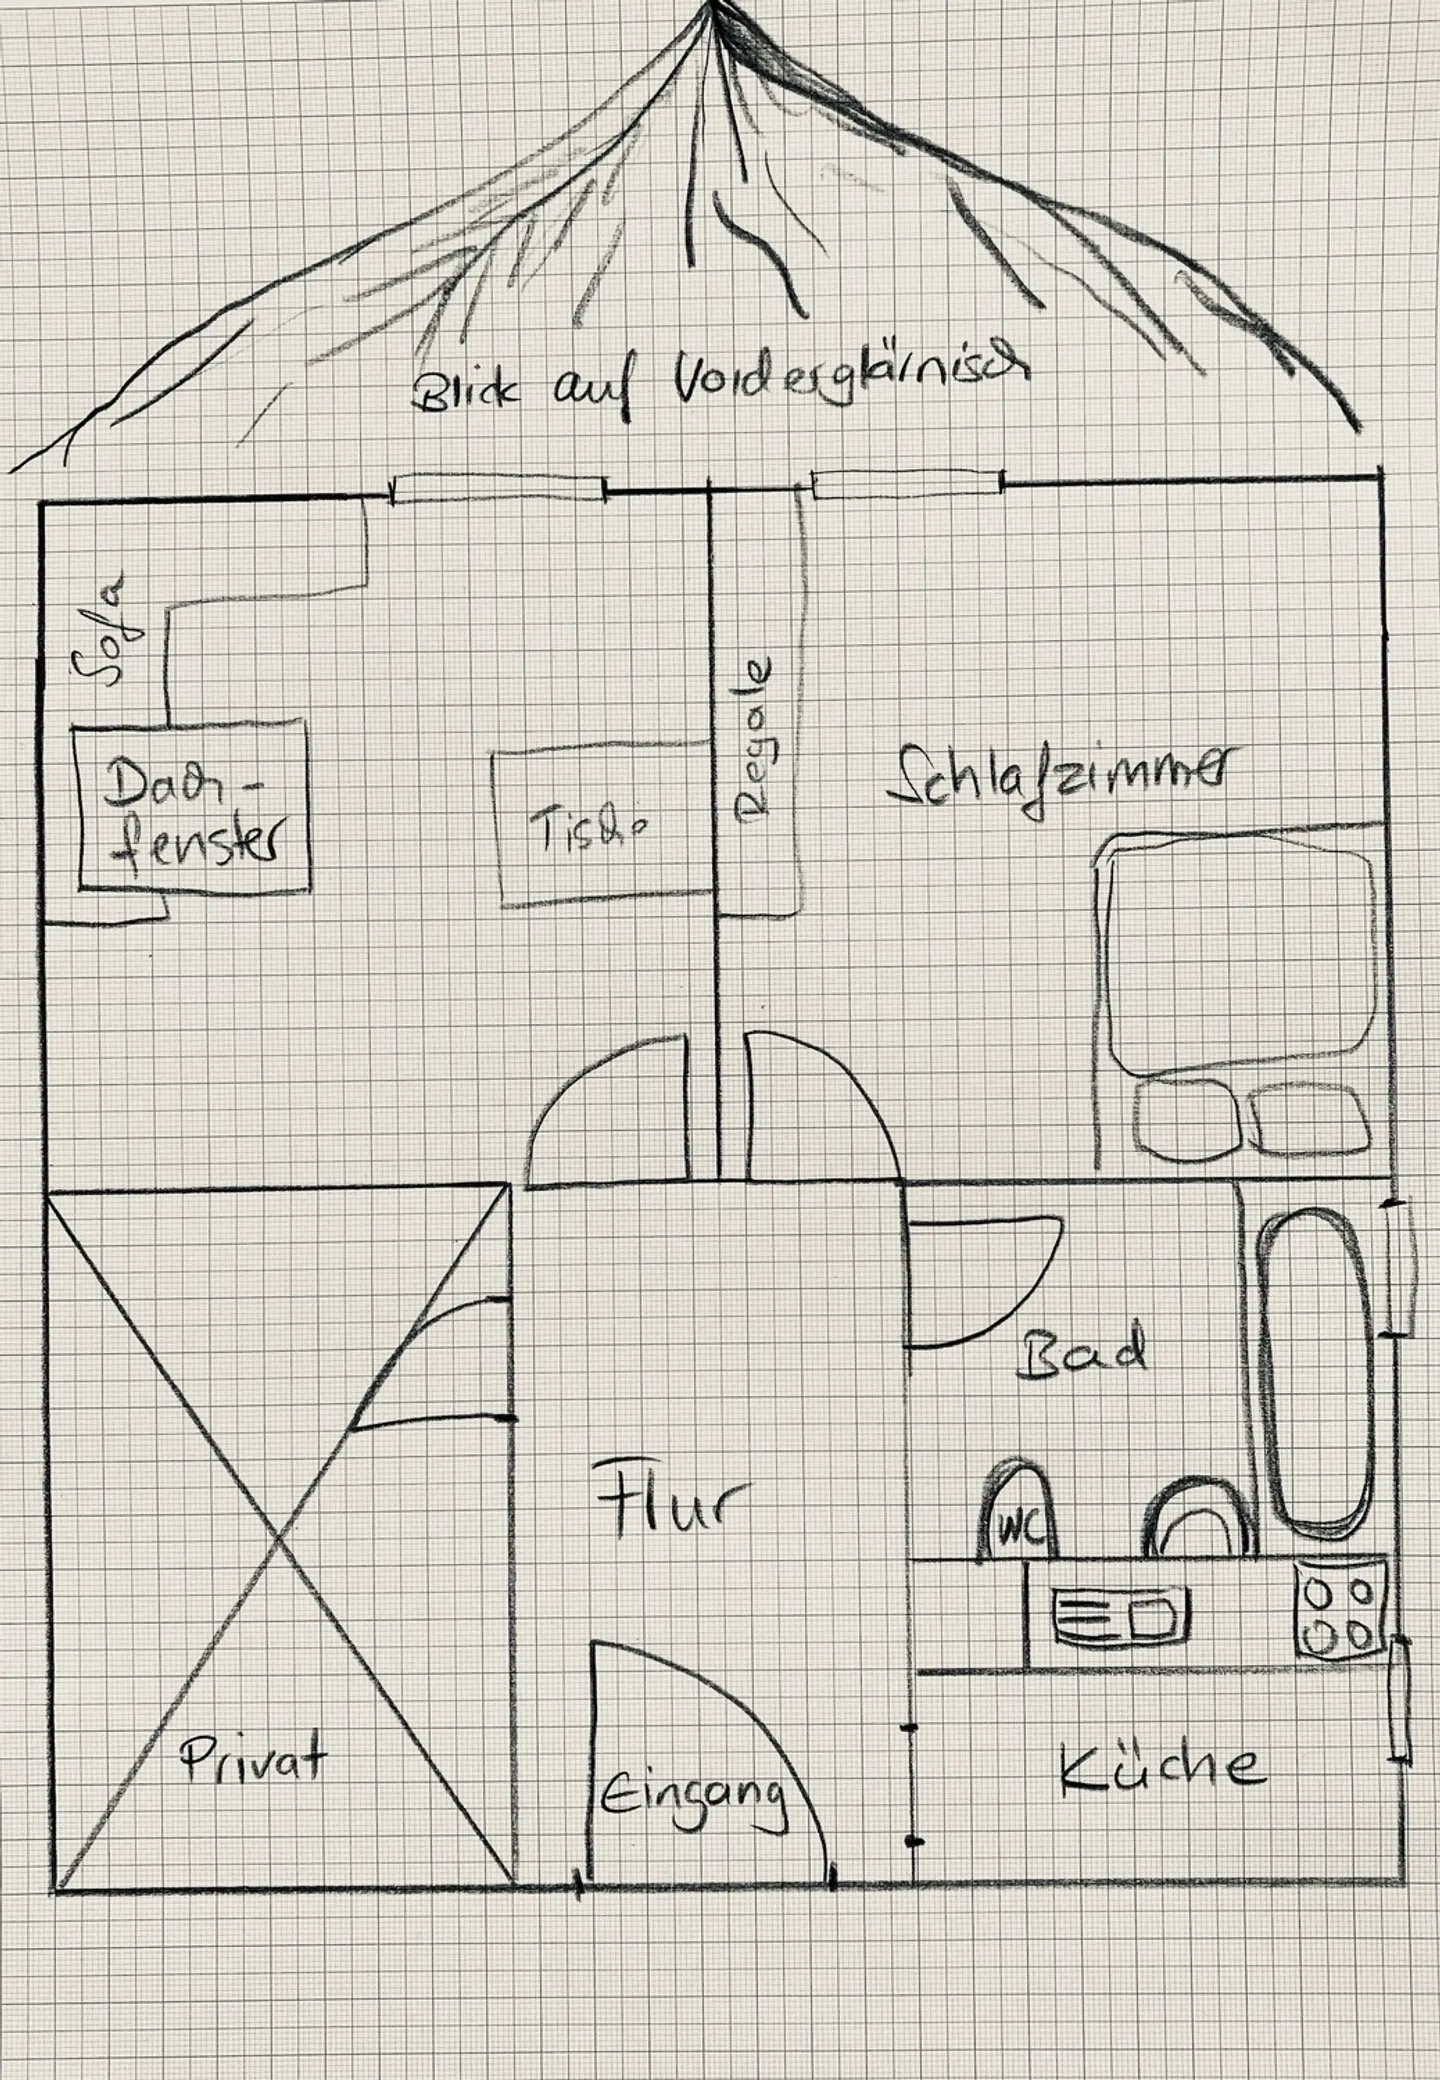 Blick auf Vorderglärnisch
Sofa
Dach-
fenster
Tisch
Regale
Schlafzimmer
Bad
WC
Flur
Privat
Eingang
Küche